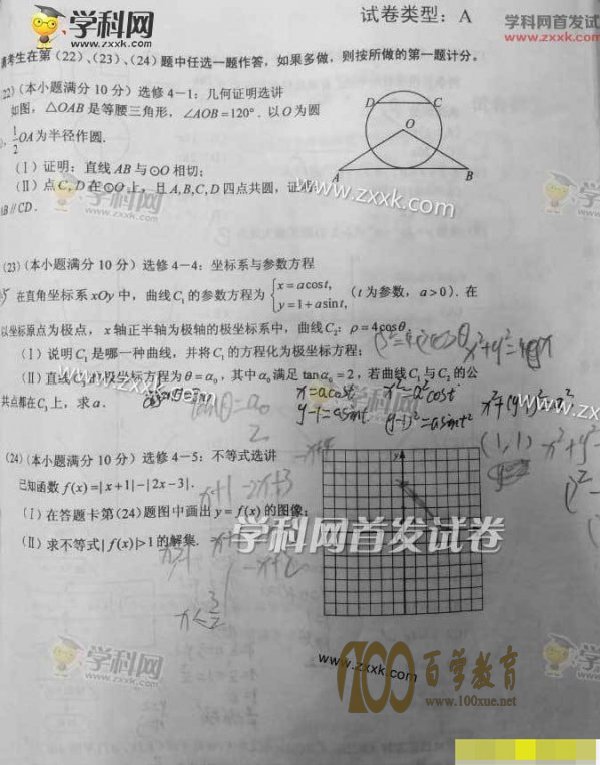 学科网
www.zxxk.com
试卷类型：A
学科网首发试
www.zxxk.com
考生在第（22）、（23）、（24）题中任选一题作答，如果多做，则按所做的第一题计分。
22)（本小题满分 10 分）选修 4－1：几何证明选讲
如图，△OAB 是等腰三角形，∠AOB＝120°. 以 O 为圆
, 1/2 OA 为半径作圆.
（Ⅰ）证明：直线 AB 与⊙O 相切；
（Ⅱ）点 C, D 在⊙O 上，且 A,B,C,D 四点共圆，证
AB∥CD.
D C
O
A B
www.zxxk.com
学科网
www.zxxk.com
(23)（本小题满分 10 分）选修 4－4：坐标系与参数方程
在直角坐标系 xOy 中，曲线 C₁ 的参数方程为 { x = a cos t, y = 1 + a sin t, （t 为参数，a＞0）. 在
以坐标原点为极点，x 轴正半轴为极轴的极坐标系中，曲线 C₂：ρ＝4cosθ
（Ⅰ）说明 C₁ 是哪一种曲线，并将 C₁ 的方程化为极坐标方程；
（Ⅱ）直线 C₃ 的极坐标方程为 θ＝α₀，其中 α₀ 满足 tanα₀＝2，若曲线 C₁ 与 C₂ 的公
共点都在 C₃ 上，求 a.
x²+y²=4x
tanθ=a₀
2
x=acost
y-1=asint
x²=a²cost
(y-1)²=asint²
x²+(y-1)²=a²
(1,1)
(24)（本小题满分 10 分）选修 4－5：不等式选讲
已知函数 f(x)=|x+1|−|2x−3|.
（Ⅰ）在答题卡第（24）题图中画出 y＝f(x) 的图像；
（Ⅱ）求不等式 |f(x)|>1 的解集.
x+1-2x+3
-x+4
x<3/2
y
学科网首发试卷
学科网
www.zxxk.com
www.zxxk.com
100百学教育
www.100xue.net